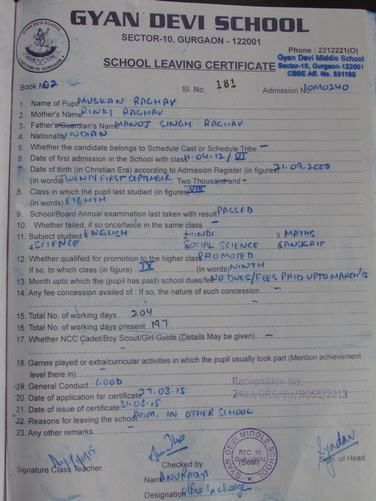 GYAN DEVI SCHOOL
SECTOR-10, GURGAON - 122001
Phone : 2212221(O)
Gyan Devi Middle School
Sector-10, Gurgaon-122001
CBSE Aff. No. 531190
SCHOOL LEAVING CERTIFICATE
Book No 02 Sl. No. 181 Admission No M0240
1. Name of Pupil MUSKAN RAGHAV
2. Mother's Name RINKI RAGHAV
3. Father's/Guardian's Name MANOJ SINGH RAGHAV
4. Nationality INDIAN
5. Whether the candidate belongs to Schedule Cast or Schedule Tribe -
6. Date of first admission in the School with class 11.04.12 / VI
7. Date of Birth (in Christian Era) according to Admission Register (in figures) 21.09.2000
(in words) TWENTY FIRST SEPTEMBER Two Thousand and -
8. Class in which the pupil last studied (in figures) VIII
(in words) EIGHTH
9. School/Board Annual examination last taken with result PASSED
10. Whether failed, if so once/twice in the same class -
11. Subject studied 1 ENGLISH 2 HINDI 3 MATHS
4 SCIENCE SOCIAL SCIENCE SANSKRIT
12. Whether qualified for promotion to the higher class PROMOTED
If so, to which class (in figure) IX (in words) NINTH
13. Month upto which the (pupil has paid) school dues/fee NO DUES/FEES PAID UPTO MARCH/15
14. Any fee concession availed of : If so, the nature of such concession -
15. Total No. of working days 204
16. Total No. of working days present 197
17. Whether NCC Cadet/Boy Scout/Girl Guide (Details May be given) -
18. Games played or extra/curricular activities in which the pupil usually took part (Mention achievement
level there in) -
19. General Conduct GOOD
20. Date of application for certificate 27.03.15
21. Date of issue of certificate 31.03.15
22. Reasons for leaving the school ADM. IN OTHER SCHOOL
23. Any other remarks -
Recognition No.
GYAN DEVI MIDDLE SCHOOL
SEC. 10
Signature Class Teacher
Checked by
(Seal)
Sign. of Head
Name ANURADHA
Designation Office Incharge